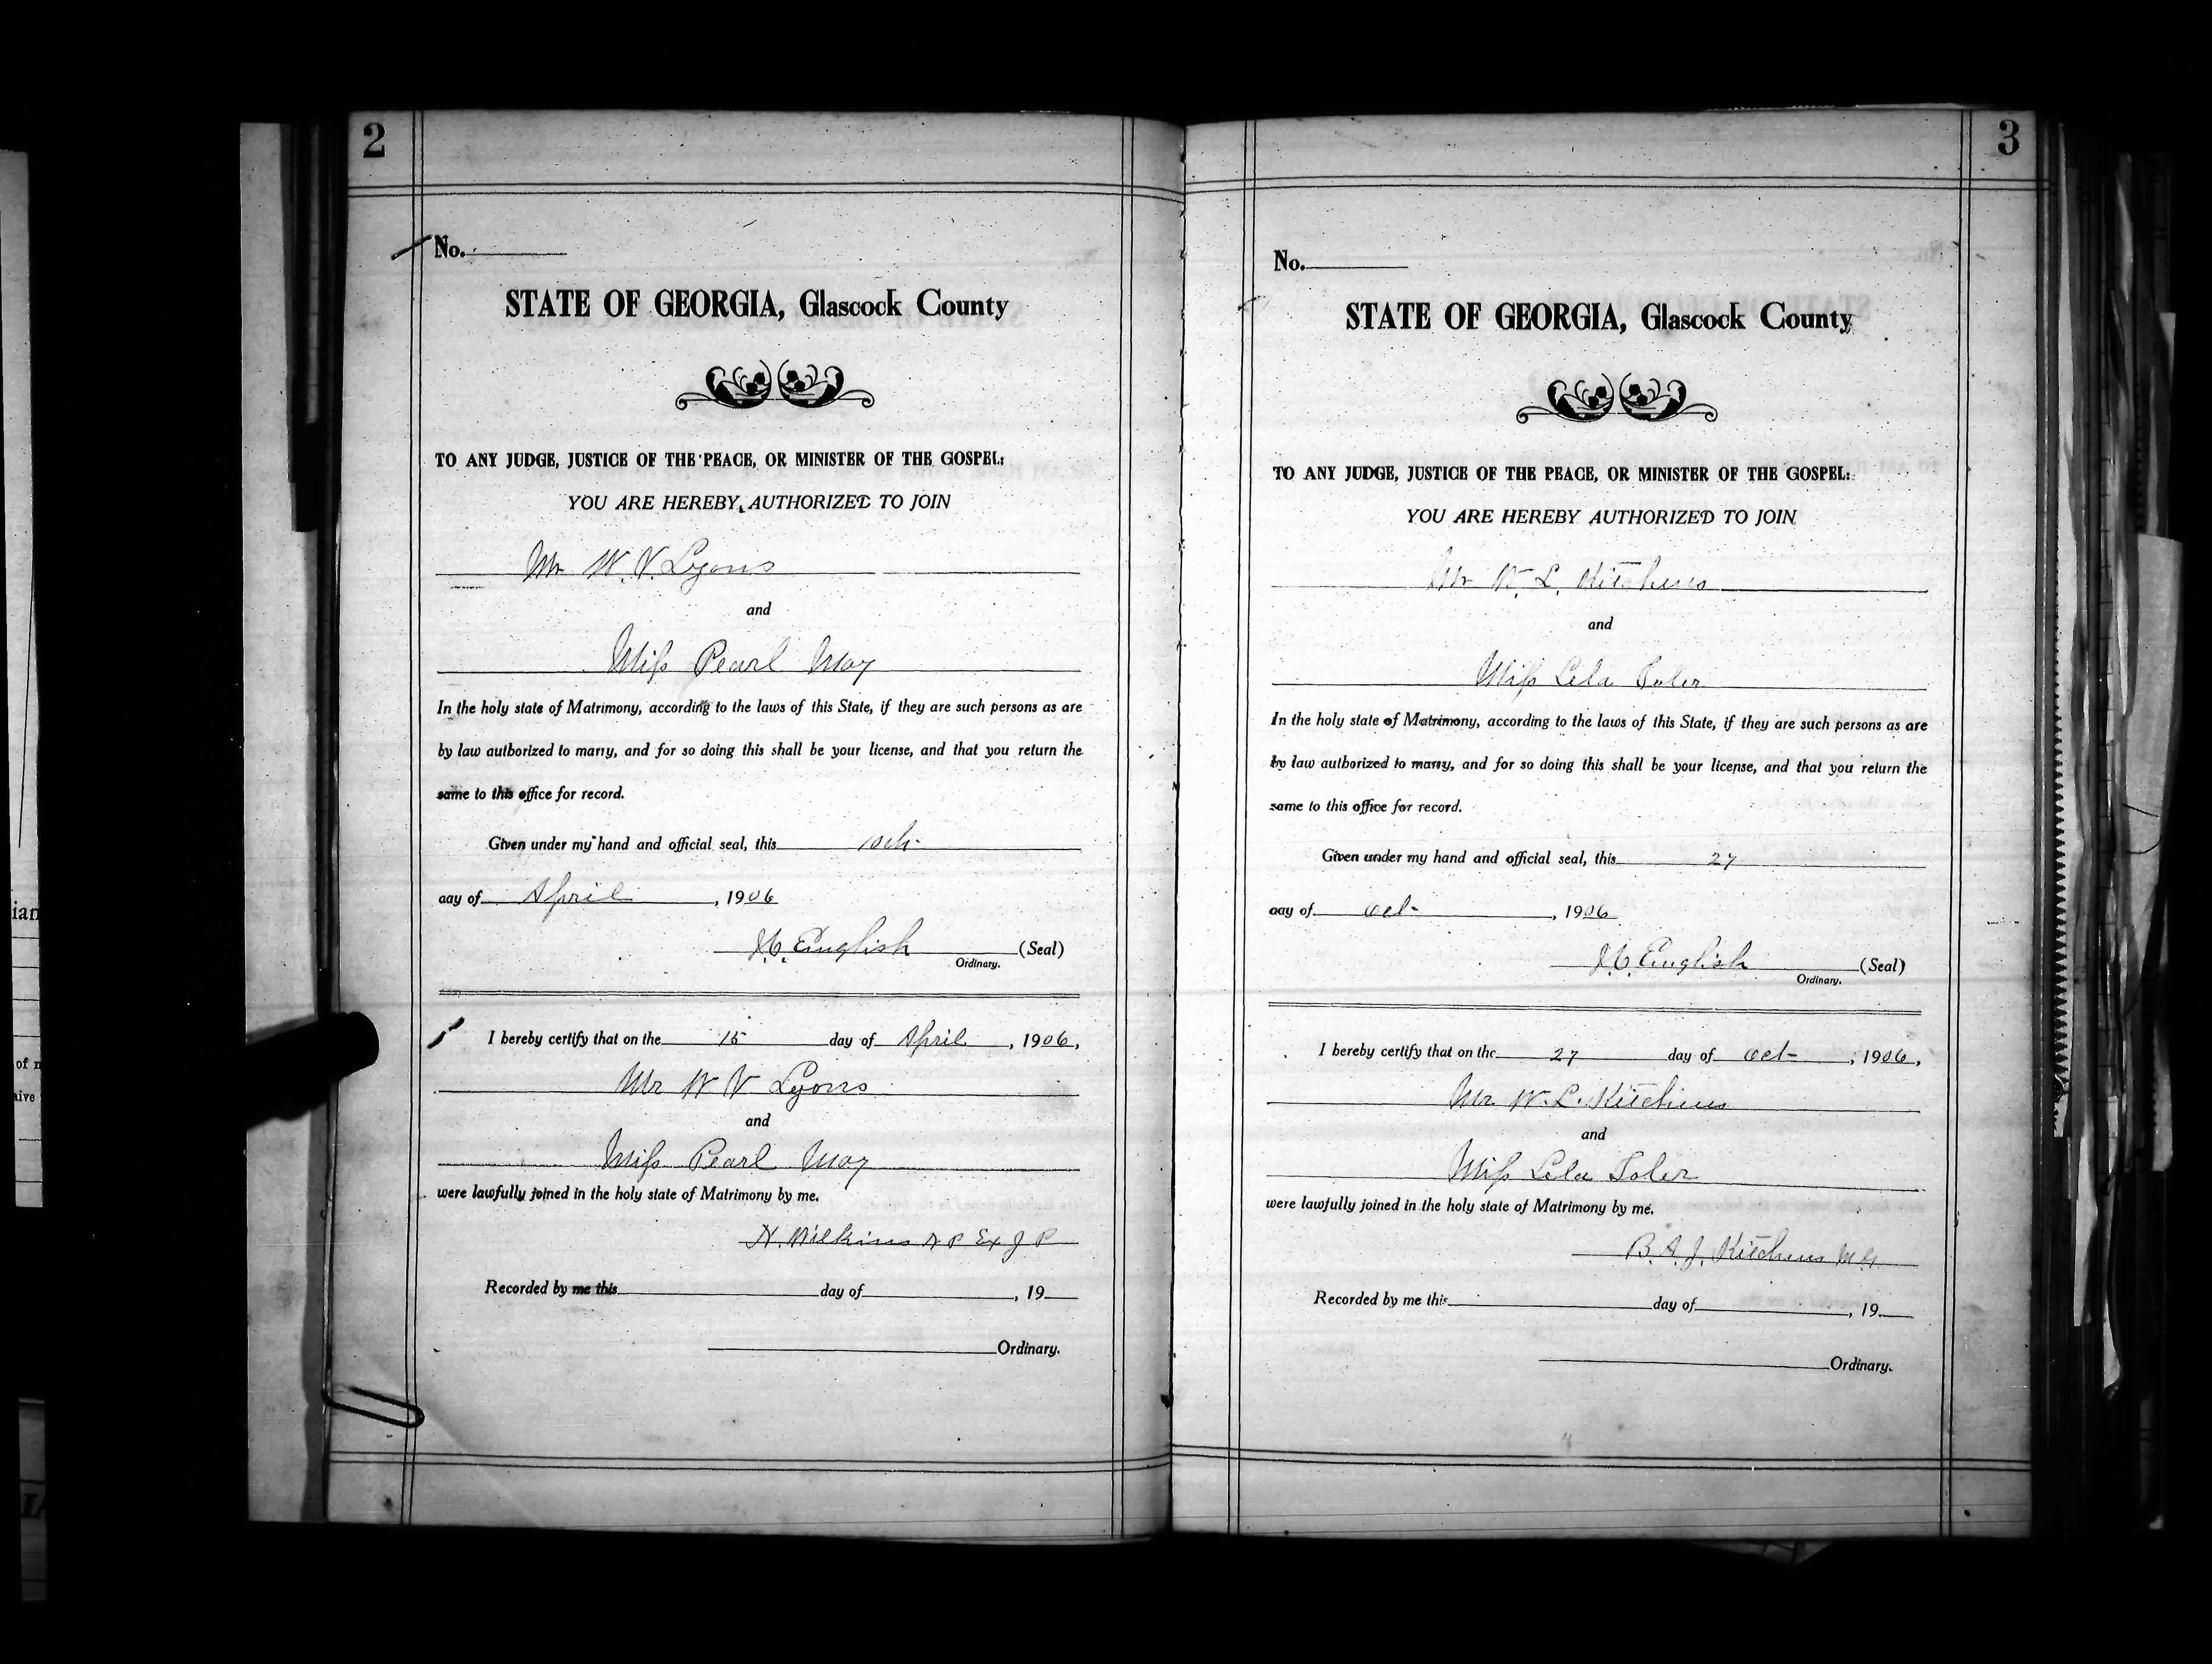 2
No.
STATE OF GEORGIA, Glascock County
TO ANY JUDGE, JUSTICE OF THE PEACE, OR MINISTER OF THE GOSPEL:
YOU ARE HEREBY AUTHORIZED TO JOIN
Mr W. V. Lyons
and
Miss Pearl May
In the holy state of Matrimony, according to the laws of this State, if they are such persons as are
by law authorized to marry, and for so doing this shall be your license, and that you return the
same to this office for record.
Given under my hand and official seal, this
day of April, 1906
English (Seal)
Ordinary.
I hereby certify that on the 15 day of April, 1906,
Mr W V Lyons
and
Miss Pearl May
were lawfully joined in the holy state of Matrimony by me.
N. Wilkins N P Ex J P
Recorded by me this day of, 19
Ordinary.
3
No.
STATE OF GEORGIA, Glascock County
TO ANY JUDGE, JUSTICE OF THE PEACE, OR MINISTER OF THE GOSPEL:
YOU ARE HEREBY AUTHORIZED TO JOIN
Mr W. L. Kitchens
and
Miss Lela Toler
In the holy state of Matrimony, according to the laws of this State, if they are such persons as are
by law authorized to marry, and for so doing this shall be your license, and that you return the
same to this office for record.
Given under my hand and official seal, this 27
day of Oct-, 1906
English (Seal)
Ordinary.
I hereby certify that on the 27 day of Oct-, 1906,
Mr. W. L. Kitchens
and
Miss Lela Toler
were lawfully joined in the holy state of Matrimony by me.
B. A. J. Kitchens M. G.
Recorded by me this day of, 19
Ordinary.